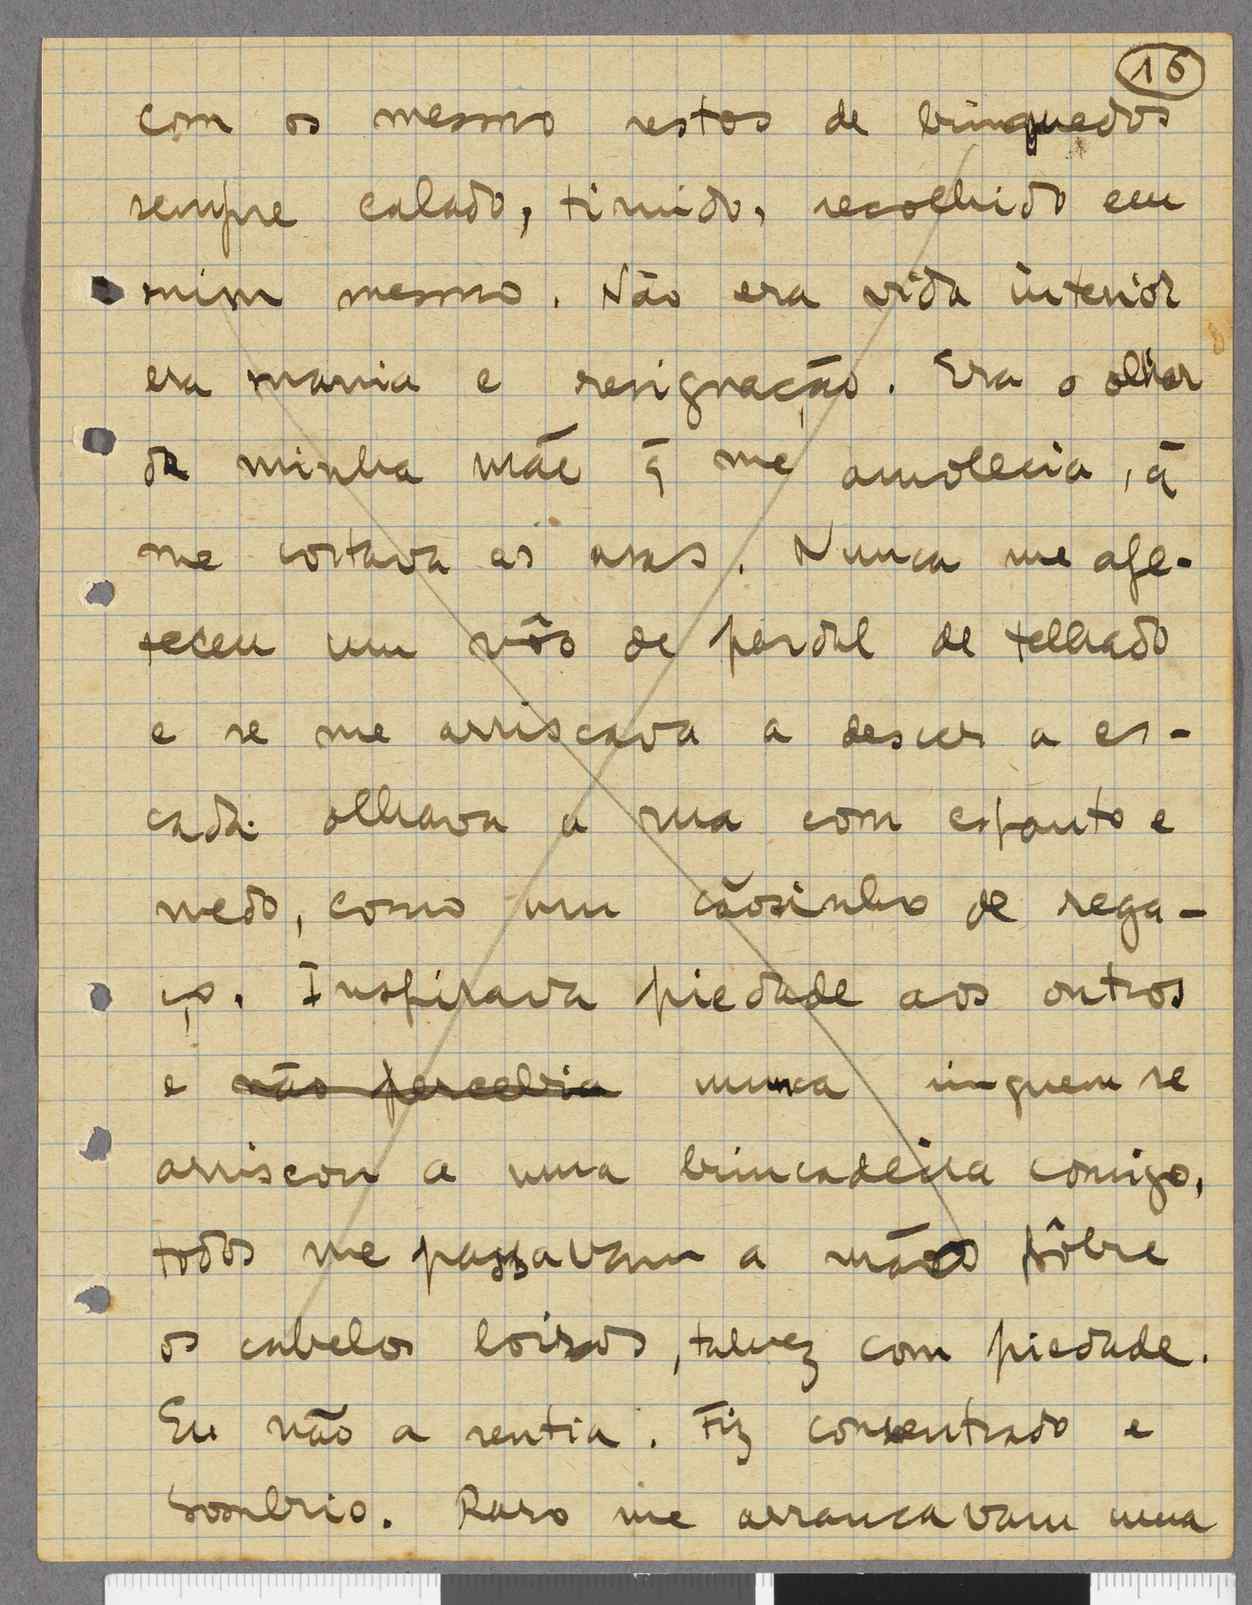 16
com os mesmo restos de brinquedos
sempre calado, timido, recolhido em
mim mesmo. Não era vida interior
era mania e resignação. Era o olhar
da minha mãe q̃ me amolecia, q̃
me cortava as asas. Nunca me ape-
teceu um vôo de pardal de telhado
e se me arriscava a descer a es-
cada olhava a rua com espanto e
medo, como um cãosinho de rega-
ço. Inspirava piedade aos outros
e não percebia nunca ninguem se
arriscou a uma brincadeira comigo,
todos me passavam a mão sôbre
os cabelos loiros, talvez com piedade.
Eu não a sentia. Fiz consentrado e
sombrio. Raro me arrancavam uma